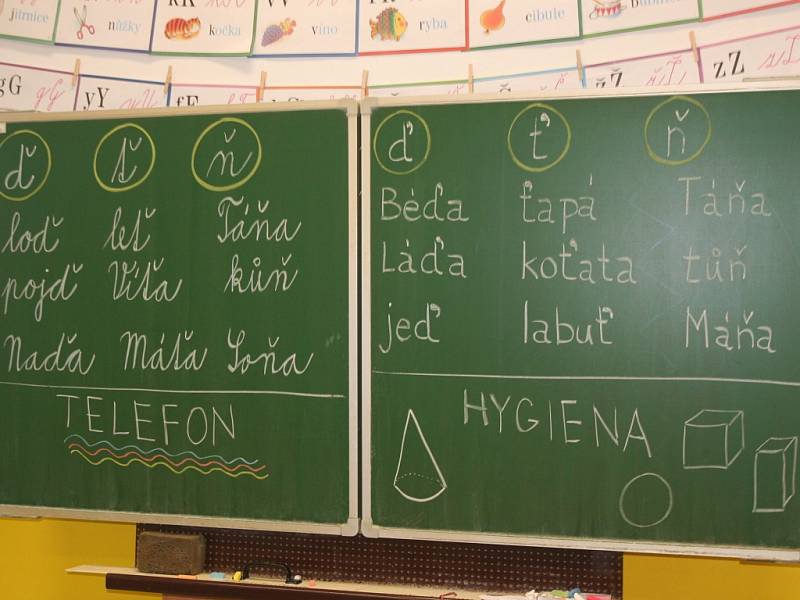 jitrnice nůžky kočka víno ryba cibule
gG yY zZ
ď ť ň
loď leť Táňa
pojď Víťa kůň
Naďa Máťa Soňa
TELEFON
ď ť ň
Béďa ťapá Táňa
Láďa koťata tůň
jeď labuť Máňa
HYGIENA